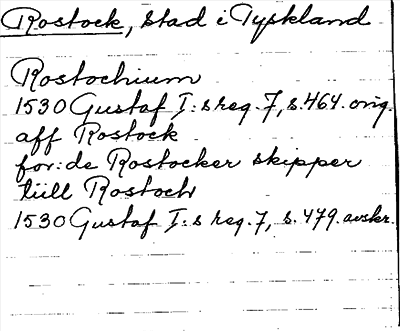 Rostock, Stad i Tyskland
Rostochium
1530 Gustaf I:s reg. 7, s. 464. orig.
aff Rostock
for: de Rostocker skipper
tiill Rostoch
1530 Gustaf I:s reg. 7, s. 479. avskr.